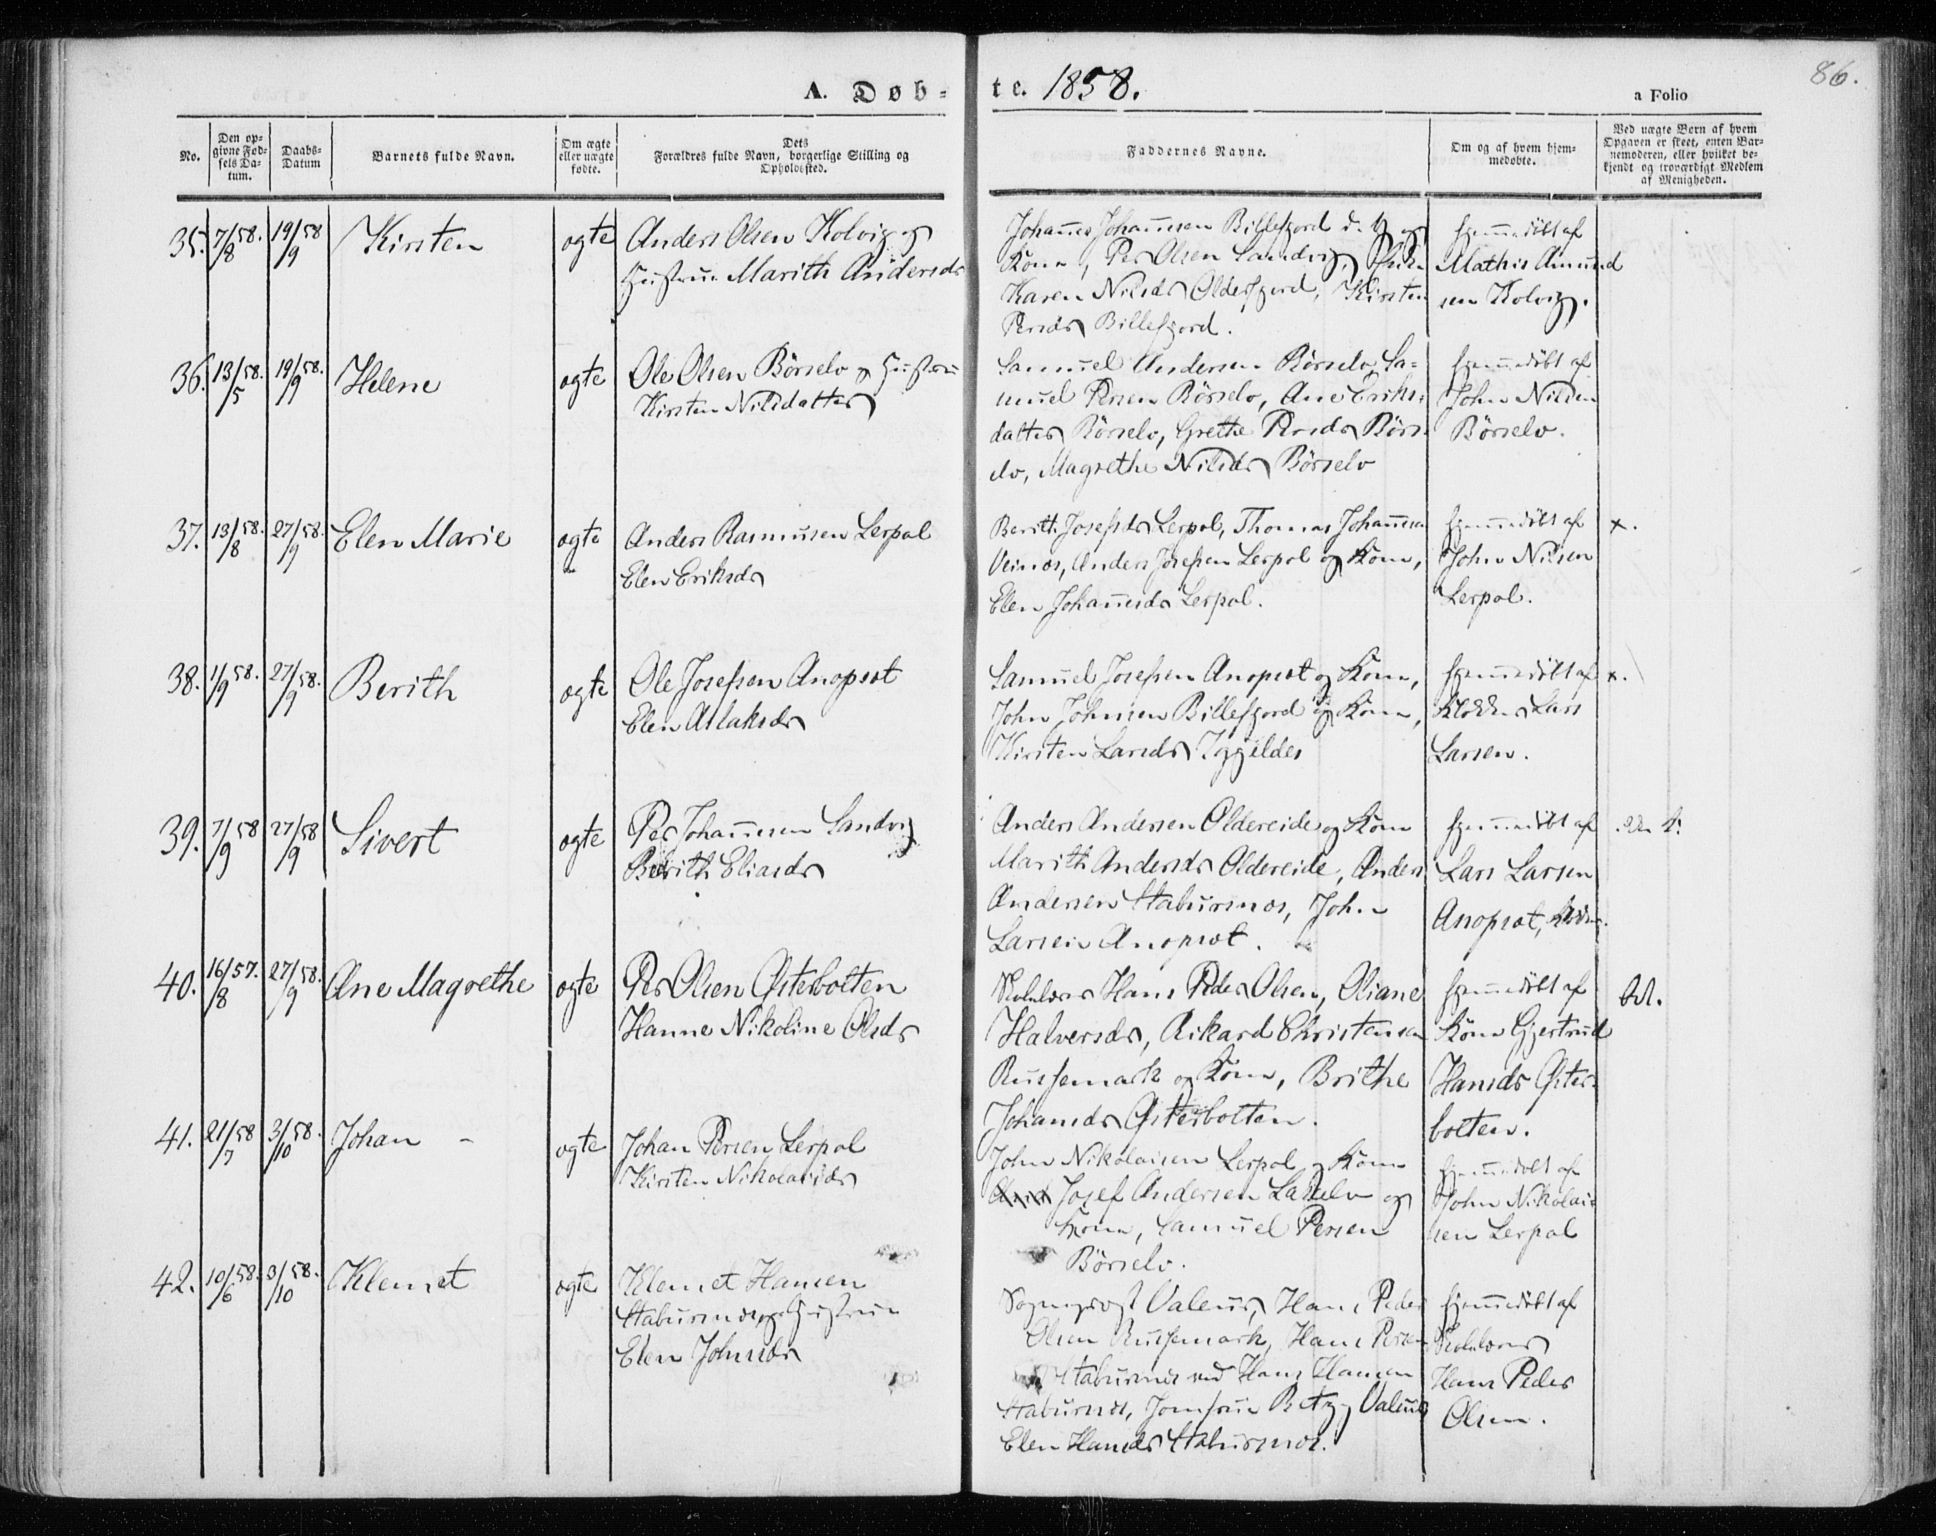 A. Døb-
te. 1858.
86.
a Folio
No.
Den op-
givne Fød-
sels Da-
tum.
Daabs-
Datum
Barnets fulde Navn.
Om ægte
eller uægte
fødte.
Dets
Forældres fulde Navn, borgerlige Stilling og
Opholdssted.
Faddernes Navne.
Om og af hvem hjem-
medøbte.
Ved uægte Børn af hvem
Opgaven er skeet, enten Bar-
nemoderen, eller hvilket be-
kjendt og troværdigt Medlem
af Menigheden.
35. 7/8 58. 19/9 58 Kirsten ægte
Anders Olsen Kolvig og
Hustrue Marith Andersdr
Johannes Johannesen Billefjord og
Kone, Per Olsen Sandvig,
Karen Nilsdr Oldefjord, Kirsten
Persdr Billefjord.
hjemmedøbt af
Mathis Amund
sen Kolvig.
36. 13/5 58. 19/9 58. Helene ægte
Ole Olsen Börselv og Hustru
Kirsten Nilsdatter
Samuel Andersen Börselv, Sa-
muel Persen Börselv, Ane Eriks-
datter Börselv, Grethe Persdr Börs-
elv, Magrethe Nilsdr Börselv
hjemmedøbt af
John Nilsen
Börselv.
37. 13/8 58. 27/9 58. Elen Marie ægte
Anders Rasmusen Lerpol
Elen Eriksdr
Berith Josefsdr Lerpol, Thomas Johannesen
Veinæs, Anders Josefsen Lerpol og Kone,
Elen Johannesdr Lerpol.
hjemmedøbt af
John Nilsen
Lerpol.
x.
38. 1/9 58. 27/9 58. Berith ægte
Ole Josefsen Anopsøt
Elen Aslaksdr
Samuel Josefsen Anopsøt og Kone,
John Johnsen Billefjord og Kone,
Kirsten Larsdr Iggeldes
hjemmedøbt af
Klokker Lars
Larsen.
x.
39. 7/9 58 27/9 58 Sivert ægte
Per Johannesen Sandvig
Berith Eliasdr
Anders Andersen Oldereide og Kone
Marith Andersdr Oldereide, Anders
Andersen Staburnæs, John
Larsen Anopsøt.
hjemmedøbt af
Lars Larsen
Anopsøt,
40. 16/8 57. 27/9 58. Ane Magrethe ægte
Per Olsen Østerbotten
Hanne Nikoline Olsdr
Skolelærer Hans Peder Olsen, Oliane
Halversdr, Rikard Christensen
Russemark og Kone, Brithe
Johansdr Østerbotten.
hjemmedøbt af
Kone Gjertrud
Hansdr Øster-
botten.
41. 21/7 58 3/10 58. Johan - ægte
Johan Persen Lerpol
Kirsten Nikolaisdr
John Nikolaisen Lerpol og Kone
Josef Andersen Lakselv og
Kone, Samuel Persen
Börselv.
hjemmedøbt af
John Nikolai-
sen Lerpol
42. 10/6 58. 3/10 58. Klemet ægte
Klemet Hansen
Staburnæs og Hustrue
Elen Johnsdr
Sogneprest Valeur, Hans Peder
Olsen Russemark, Hans Persen
Staburnæs ved Hans Hansen
Staburnæs, Jomfrue Betzy Valeur
Elen Hansdr Staburnæs.
hjemmedøbt af
Skolelærer
Hans Peder
Olsen.